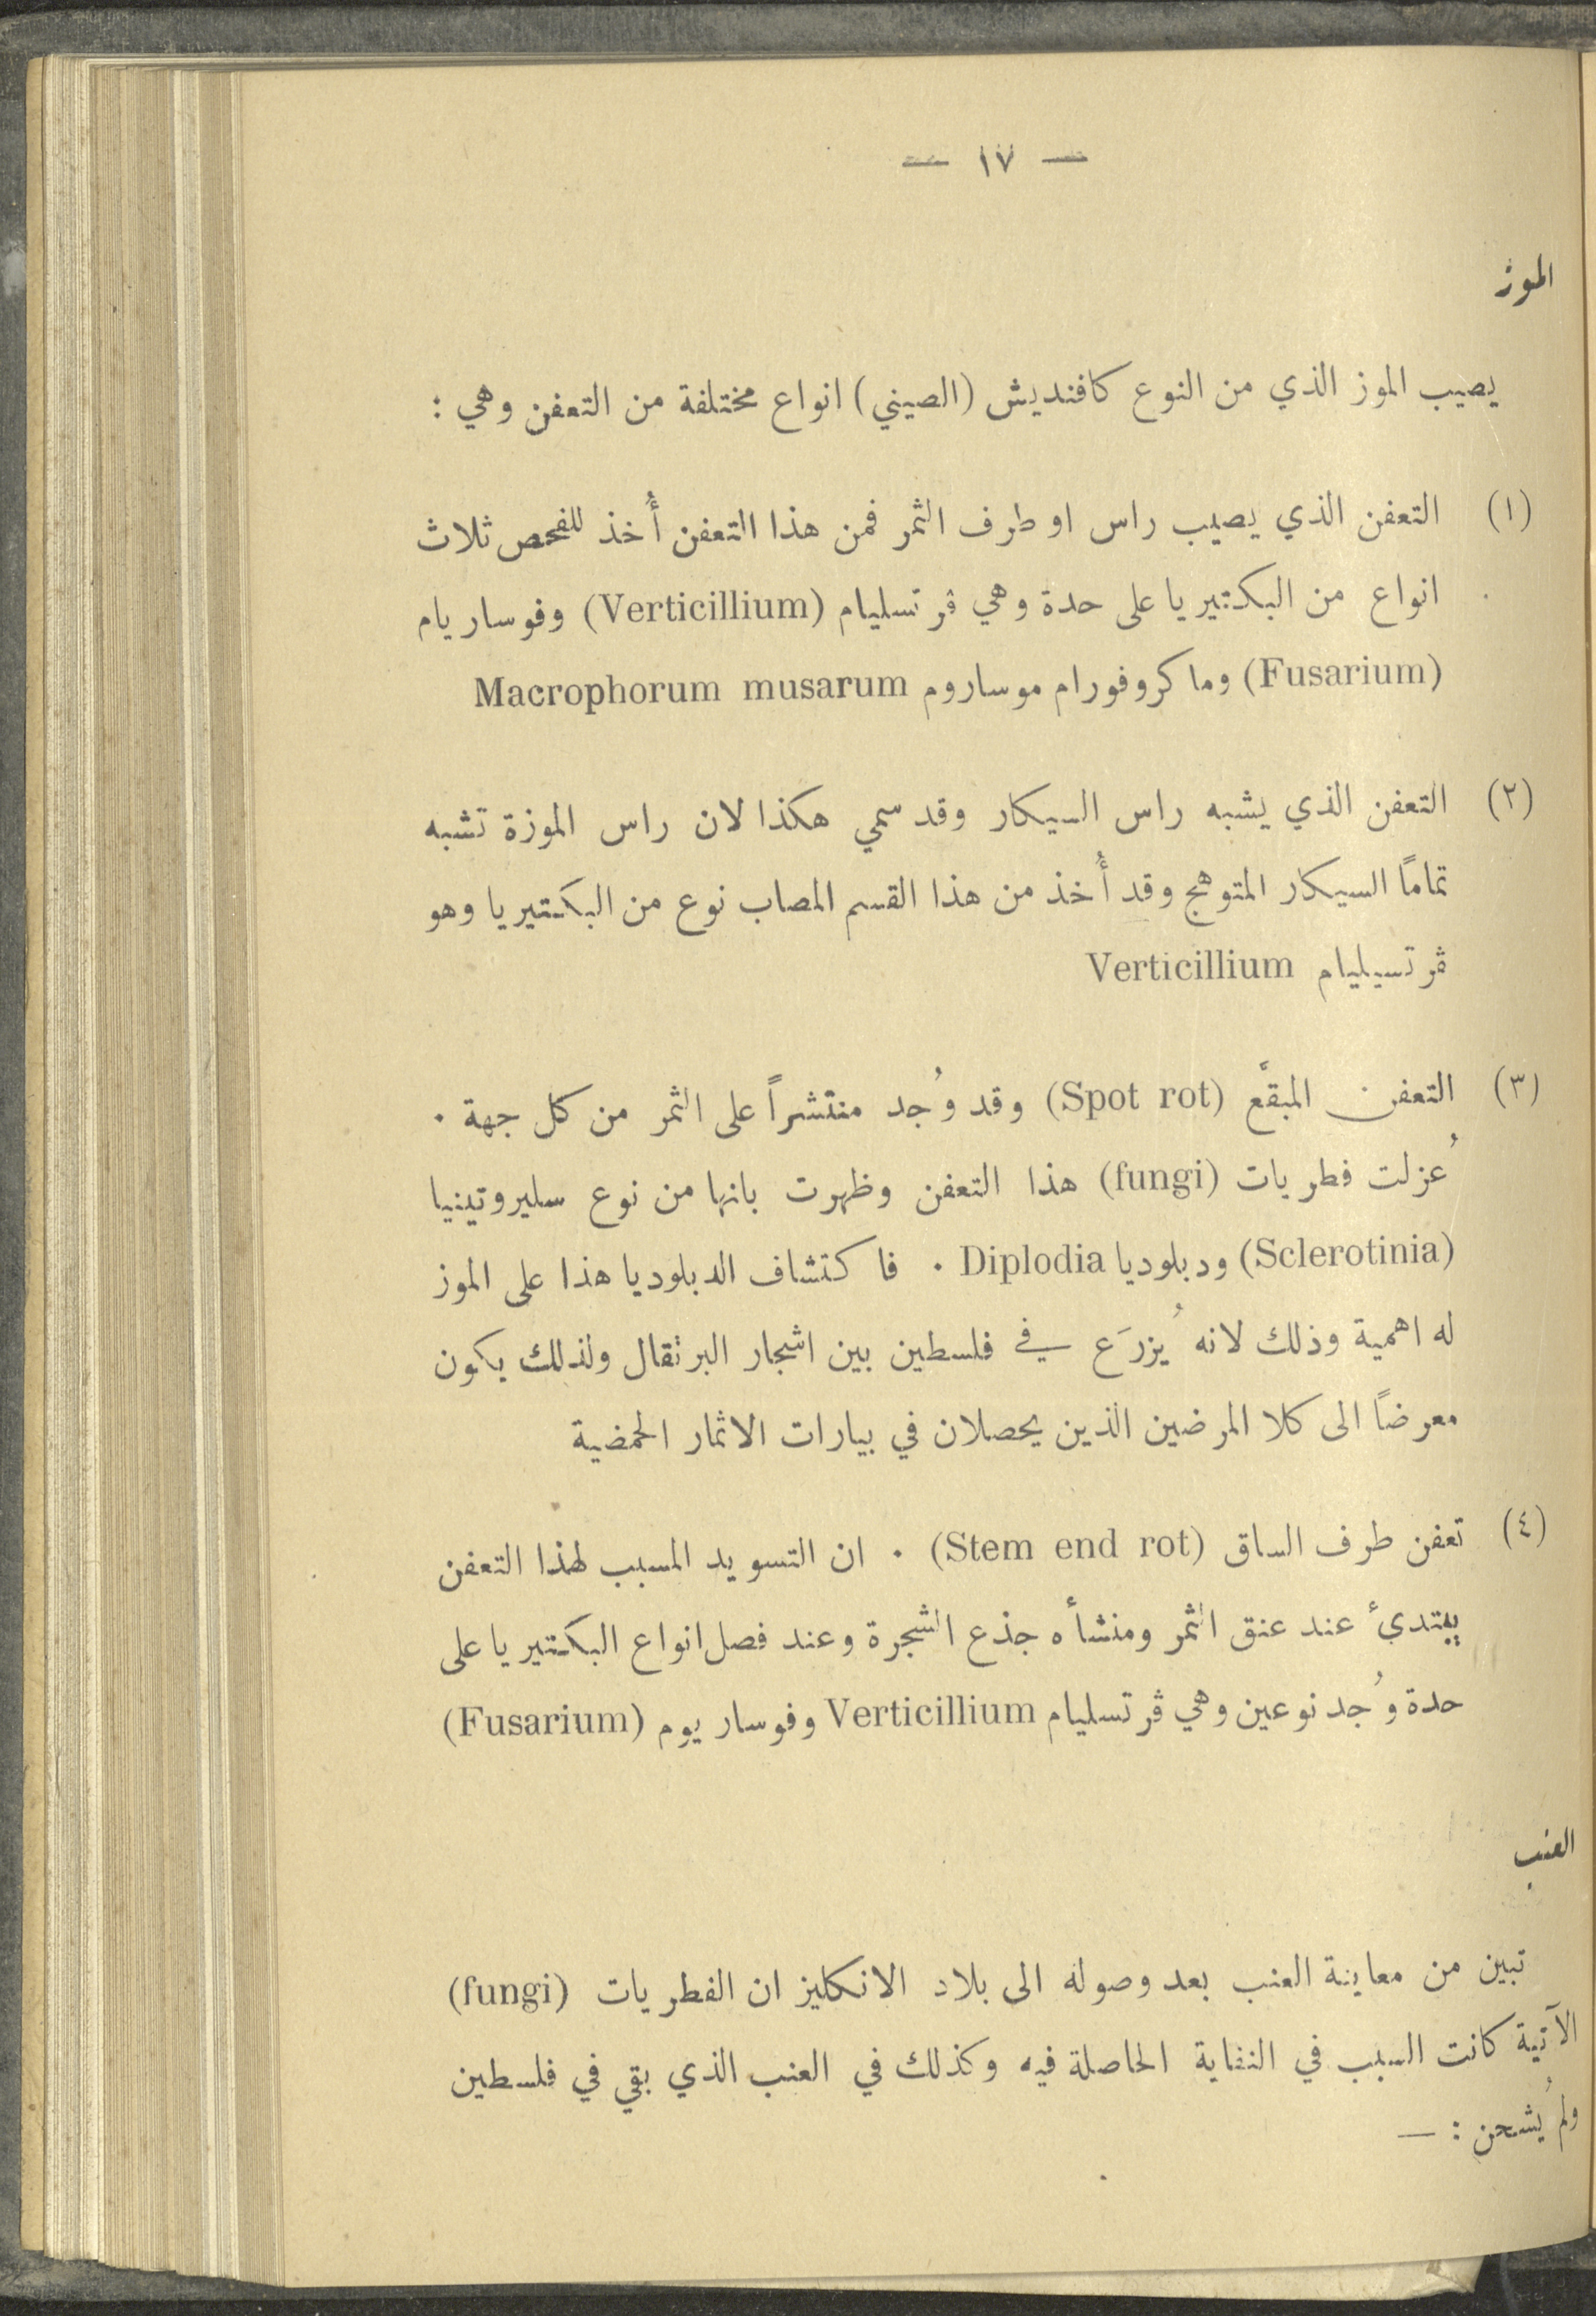 — ١٧ —
الموز
يصيب الموز الذي من النوع كافنديش (الصيني) انواع مختلفة من التعفن وهي :
(١) التعفن الذي يصيب راس او طرف الثمر فمن هذا التعفن أُخذ للفحص ثلاث
انواع من البكتيريا على حدة وهي ڤرتسليام (Verticillium) وفوساريام
(Fusarium) وماكروفورام موساروم Macrophorum musarum
(٢) التعفن الذي يشبه راس السيكار وقد سمي هكذا لان راس الموزة تشبه
تمامًا السيكار المتوهج وقد أُخذ من هذا القسم المصاب نوع من البكتيريا وهو
ڤرتسيليام Verticillium
(٣) التعفن المبقَّع (Spot rot) وقد وُجد منتشراً على الثمر من كل جهة .
عُزلت فطريات (fungi) هذا التعفن وظهرت بانها من نوع سليروتينيا
(Sclerotinia) ودبلوديا Diplodia . فاكتشاف الدبلوديا هذا على الموز
له اهمية وذلك لانه يُزرَع في فلسطين بين اشجار البرتقال ولذلك يكون
معرضًا الى كلا المرضين الذين يحصلان في بيارات الاثمار الحمضية
(٤) تعفن طرف الساق (Stem end rot) . ان التسويد المسبب لهذا التعفن
يبتدئ عند عنق الثمر ومنشأه جذع الشجرة وعند فصل انواع البكتيريا على
حدة وُجد نوعين وهي ڤرتسليام Verticillium وفوساريوم (Fusarium)
العنب
تبين من معاينة العنب بعد وصوله الى بلاد الانكليز ان الفطريات (fungi)
الآتية كانت السبب في النفاية الحاصلة فيه وكذلك في العنب الذي بقي في فلسطين
ولم يُشحن : —